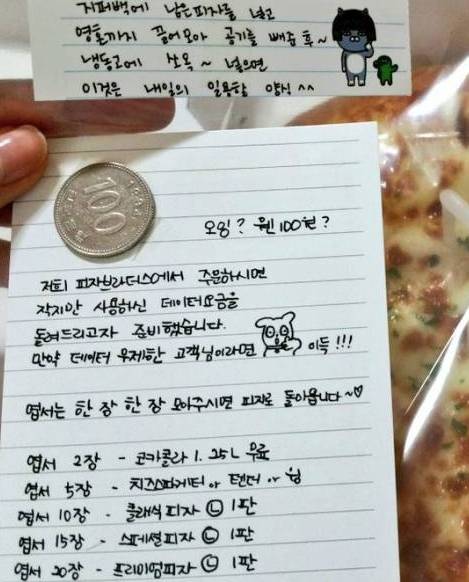 지퍼백에 남은피자를 넣고
영혼까지 끌어모아 공기를 빼준 후~
냉동고에 쏘옥~ 넣으면
이것은 내일의 일용할 양식 ^^
100
오잉? 웬 100원?
저희 피자브라더스에서 주문하시면
작지만 사용하신 데이터요금을
돌려드리고자 준비했습니다.
만약 데이터 무제한 고객님이라면 이득!!!
엽서는 한 장 한 장 모아주시면 피자로 돌아옵니다~♡
엽서 2장 - 코카콜라 1.25L 무료
엽서 5장 - 치즈스파게티 or 텐더 or 윙
엽서 10장 - 클래식피자 Ⓛ 1판
엽서 15장 - 스페셜피자 Ⓛ 1판
엽서 20장 - 프리미엄피자 Ⓛ 1판